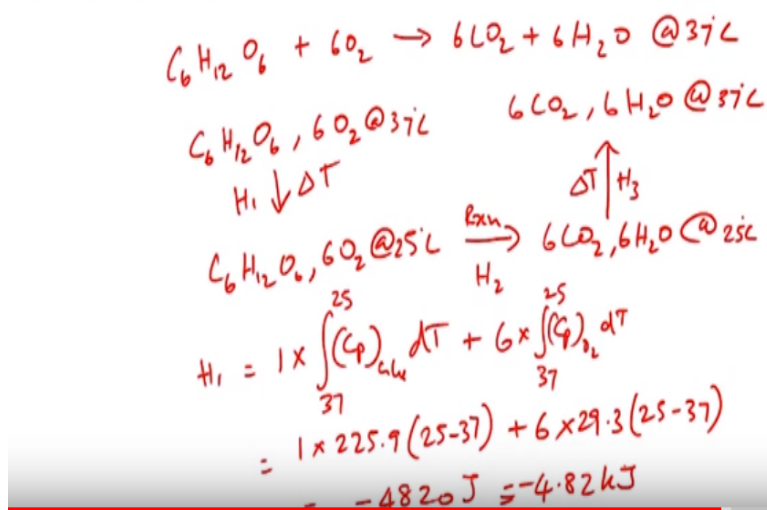 C₆H₁₂O₆ + 6O₂ → 6CO₂ + 6H₂O @37°C
C₆H₁₂O₆, 6O₂@37°C 6CO₂, 6H₂O@37°C
H₁ ↓ ΔT ΔT ↑ H₃
C₆H₁₂O₆, 6O₂@25°C Rxn → H₂ 6CO₂, 6H₂O@25°C
H₁ = 1 × ∫₃₇²⁵ (Cp)gluc dT + 6 × ∫₃₇²⁵ (Cp)O₂ dT
= 1 × 225.9 (25-37) + 6 × 29.3 (25-37)
= -4820 J = -4.82 kJ